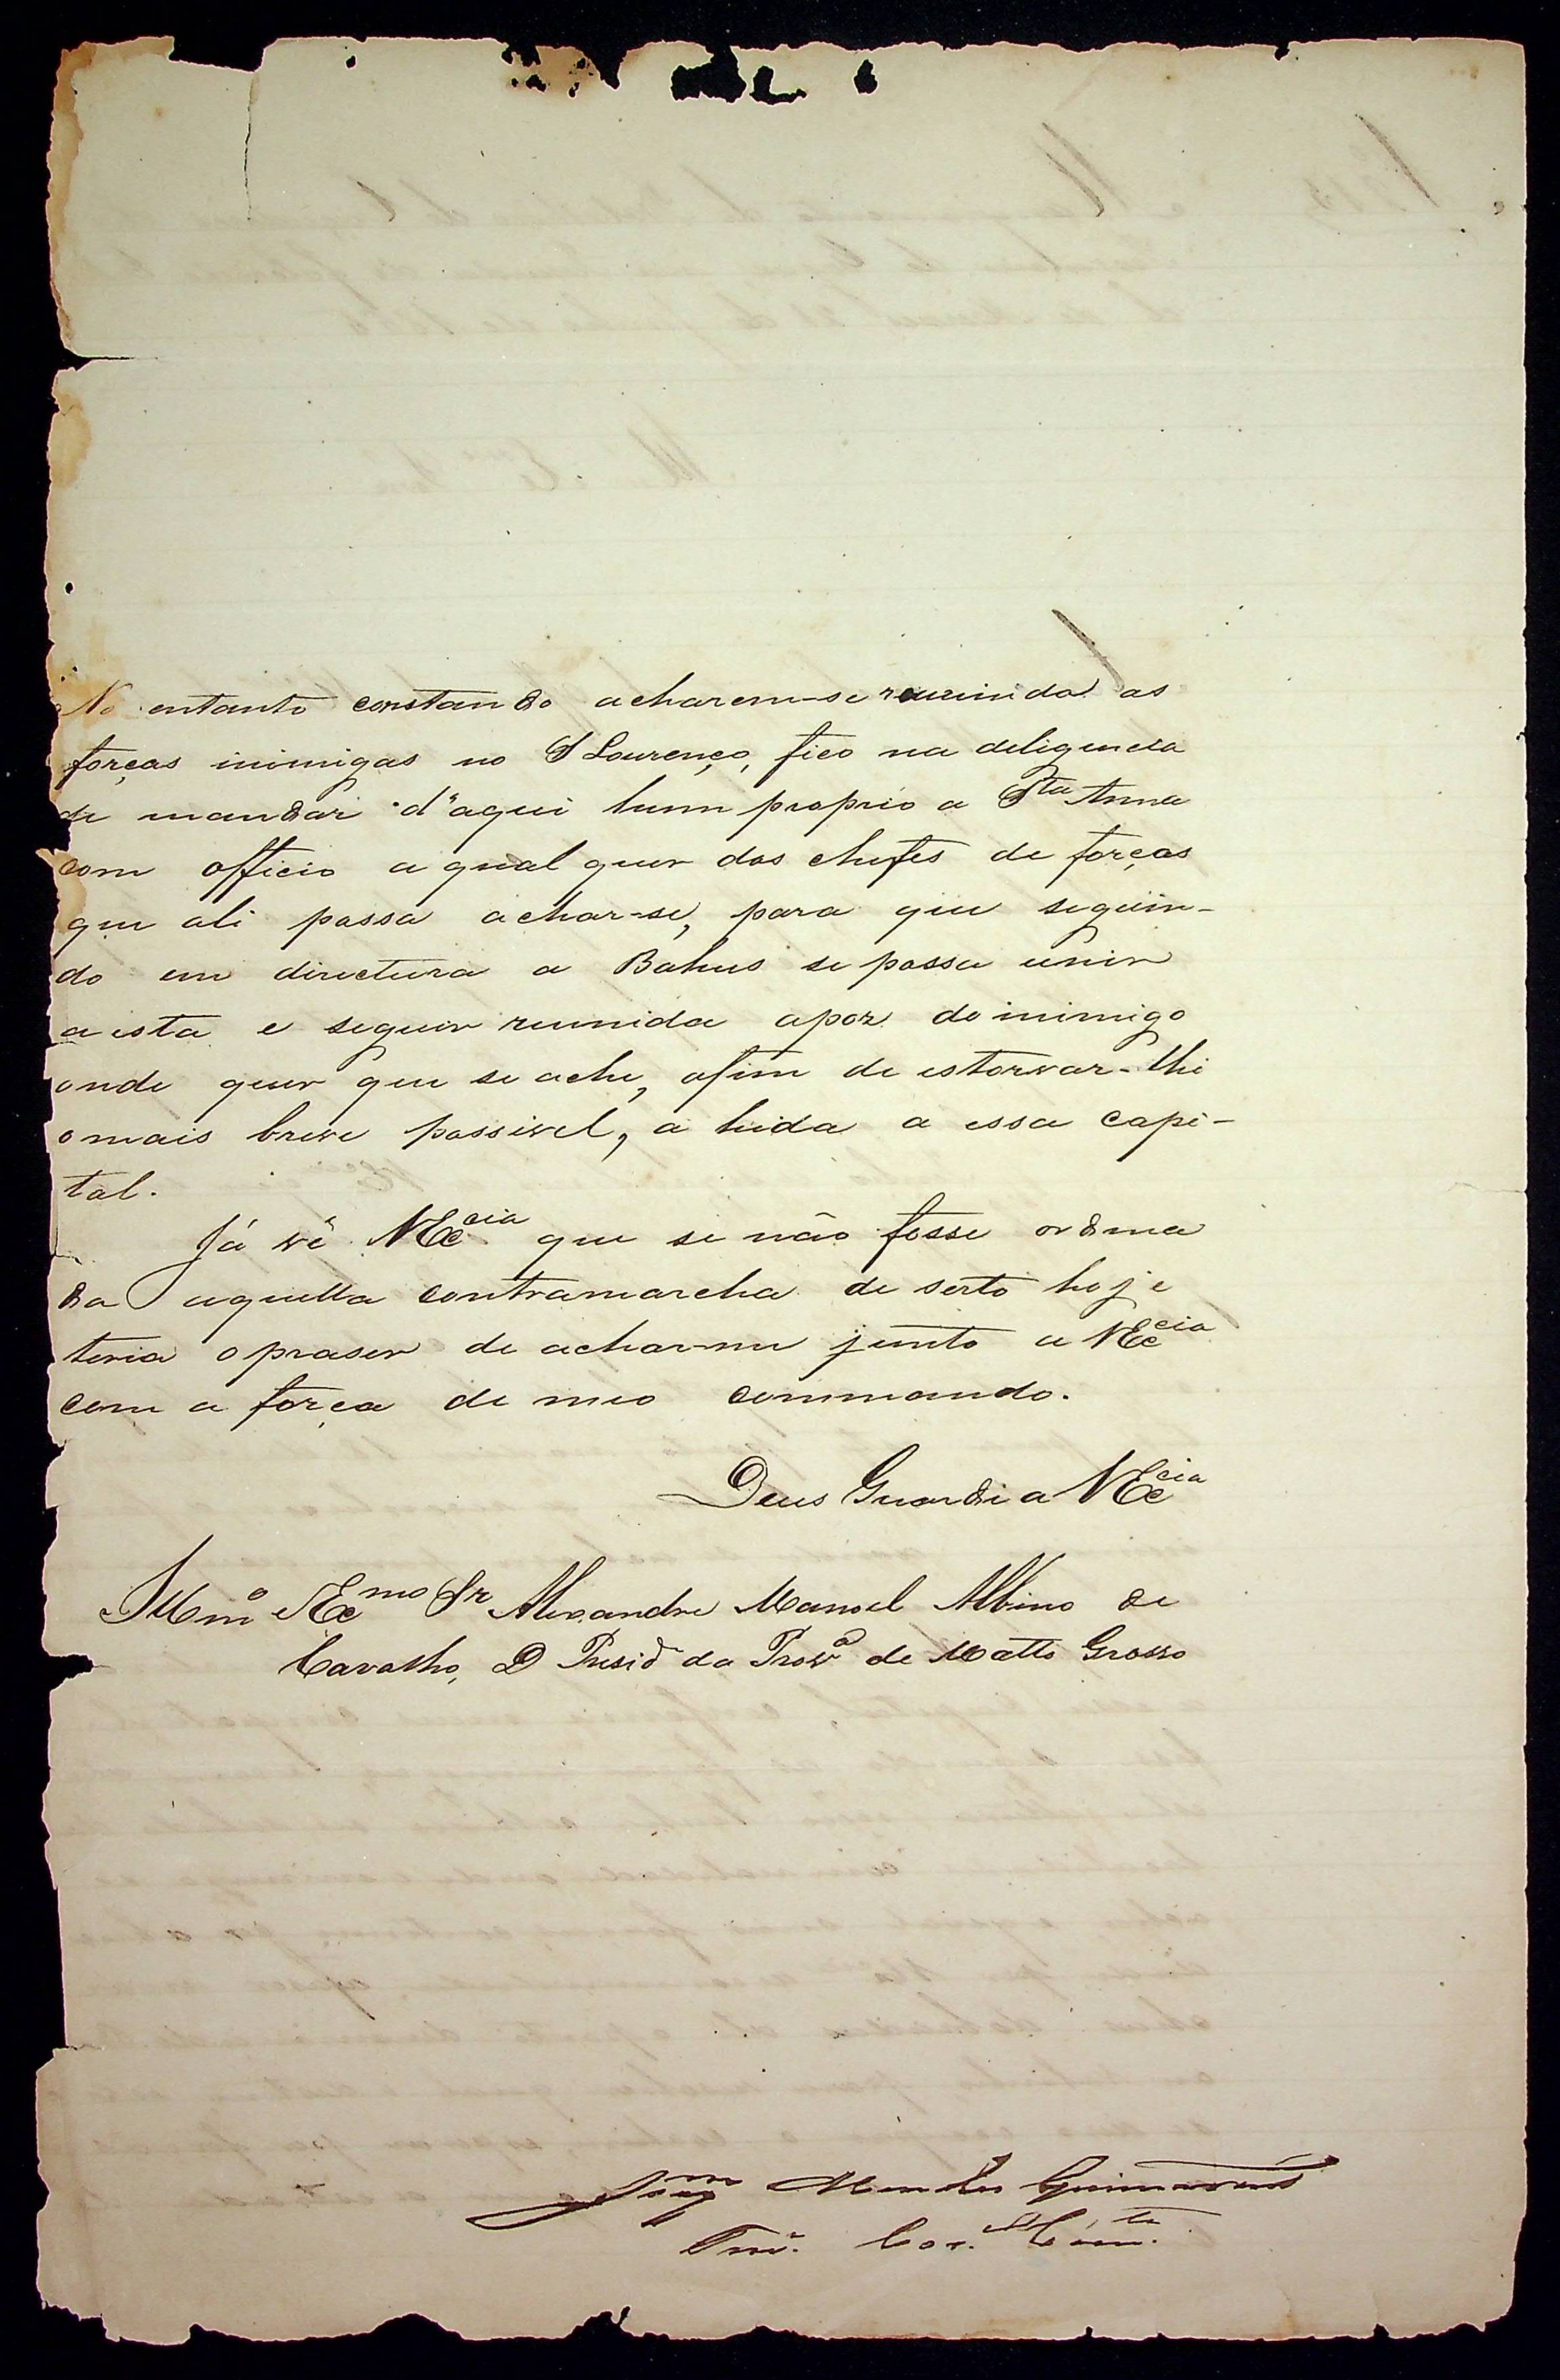 No entanto constando acharem-se reunida as
forças inimigas no S Lourenço, fico na deligencia
de mandar d'aqui hum proprio a Sta Anna
com officio a qual quer dos chefes de forças
que ali possa achar-se, para que seguin-
do em directura a Bahus se possa unir
a esta e seguir reunida apoz do inimigo
onde quer que se ache, afim de estorvar-lhe
o mais breve possivel, a hida a essa capi-
tal.
Já vê VExcia que se não fosse ordena
da aquella contramarcha de serto hoje
teria o praser de achar-me junto a VExcia
com a força de meo commando.
Deus Guarde a VExcia
Illmo e Exmo Sr Alexandre Manoel Albino de
Carvalho, D Preside da Prova de Matto Grosso
Mendes Guimarães
Tne. Cor. Comte.